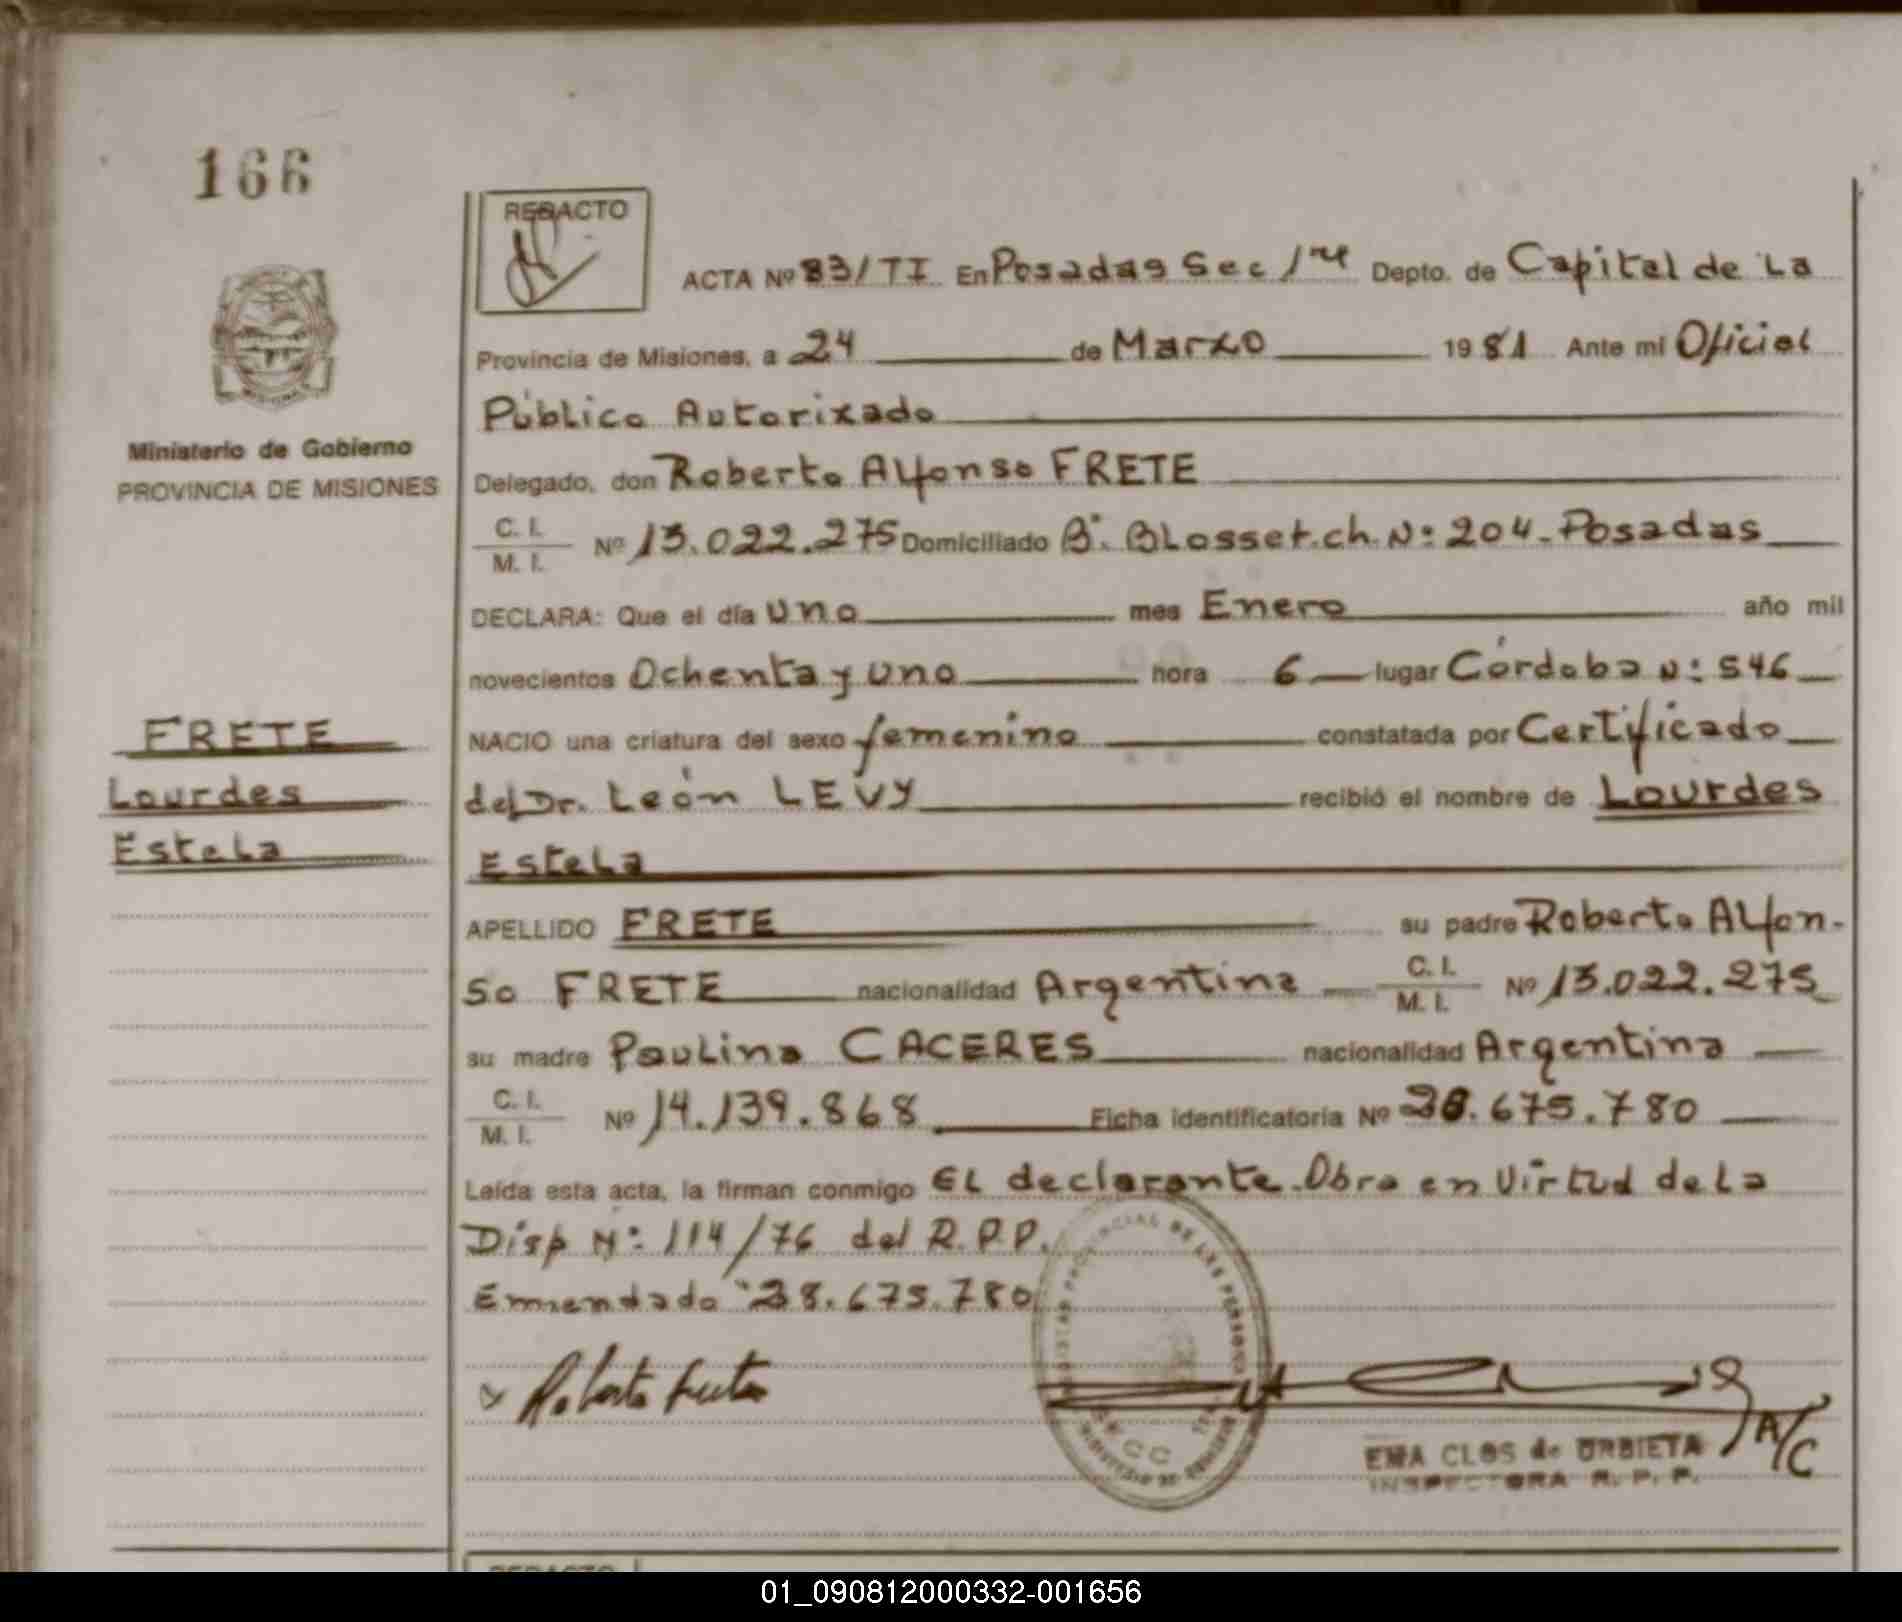 166
REDACTO
ACTA Nº 83/TI En Posadas Sec 1ra Depto. de Capital de La
Provincia de Misiones, a 24 de Marzo 1981 Ante mi Oficial
Público Autorizado
Ministerio de Gobierno
PROVINCIA DE MISIONES
Delegado, don Roberto Alfonso FRETE
C. I.
M. I. Nº 13.022.275 Domiciliado Bº. BLosset.ch. Nº: 204-Posadas
DECLARA: Que el día uno mes Enero año mil
novecientos Ochenta y uno hora 6 lugar Córdoba Nº: 546
FRETE
Lourdes
Estela
NACIO una criatura del sexo femenino constatada por Certificado
del Dr. León LEVY recibió el nombre de Lourdes
Estela
APELLIDO FRETE su padre Roberto Alfon-
so FRETE nacionalidad Argentina C. I. M. I. Nº 13.022.275
su madre Paulina CACERES nacionalidad Argentina
C. I.
M. I. Nº 14.139.868 Ficha identificatoria Nº 28.675.780
Leída esta acta, la firman conmigo EL declarante. Obra en Virtud de La
Disp Nº: 114/76 del R.P.P.
Enmendado "28.675.780
x Roberto Frete
REGISTRO PROVINCIAL DE LAS PERSONAS
A/C
EMA CLOS de URBIETA
INSPECTORA R. P. P.
REDACTO
01_090812000332-001656